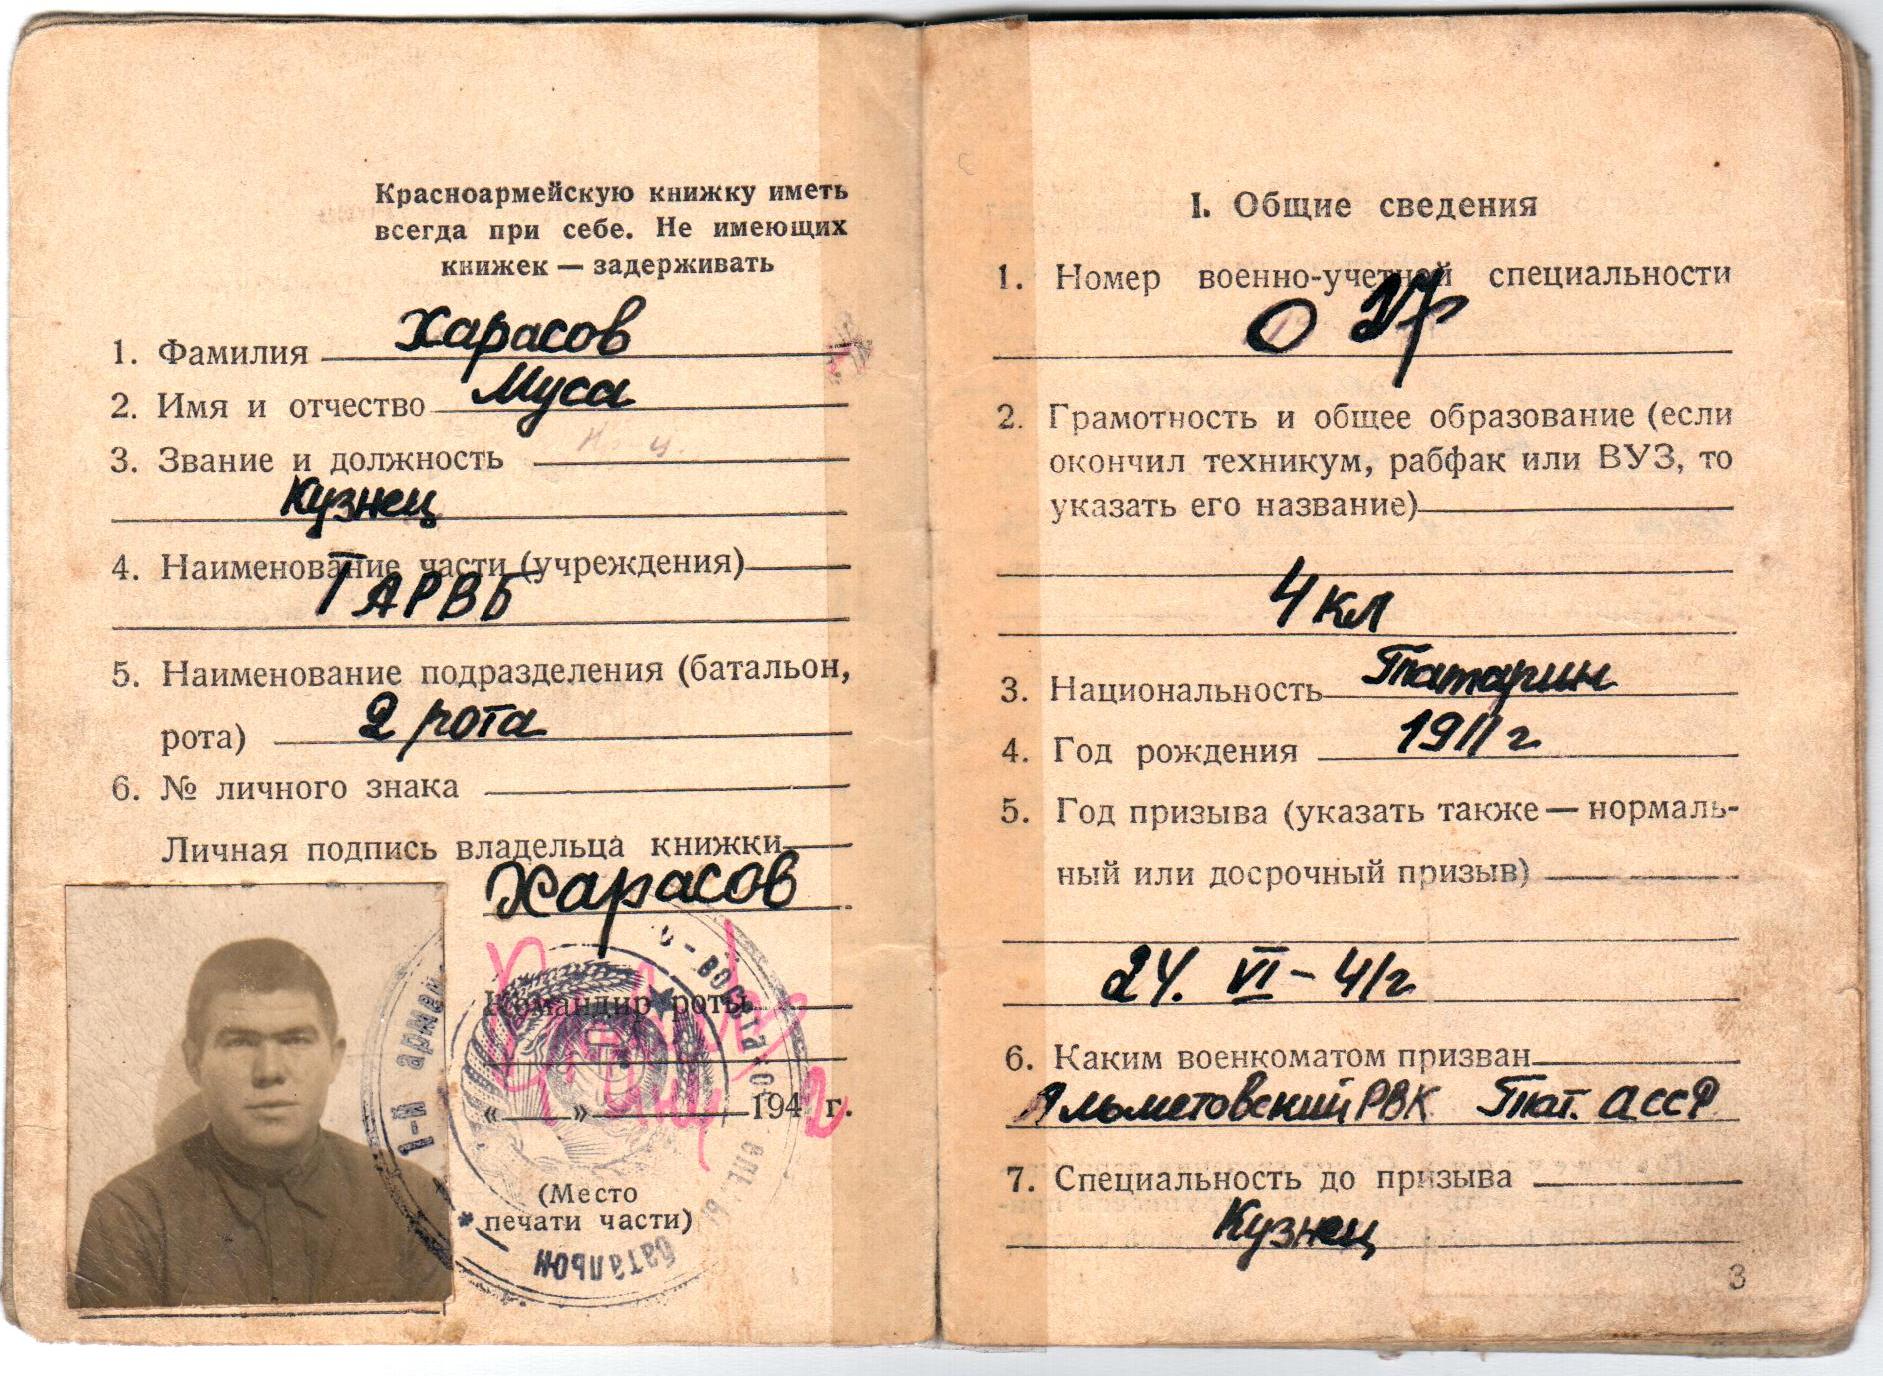 Красноармейскую книжку иметь
всегда при себе. Не имеющих
книжек — задерживать
1. Фамилия Харасов
2. Имя и отчество Муса
3. Звание и должность
Кузнец
4. Наименование части (учреждения)
I АРВБ
5. Наименование подразделения (батальон,
рота) 2 рота
6. № личного знака
Личная подпись владельца книжки
Харасов
Командир роты
« » 194 2 г.
(Место
печати части)
1-й армей
батальон
I. Общие сведения
1. Номер военно-учетной специальности
2. Грамотность и общее образование (если
окончил техникум, рабфак или ВУЗ, то
указать его название)
4 кл
3. Национальность Татарин
4. Год рождения 1911 г
5. Год призыва (указать также — нормаль-
ный или досрочный призыв)
24. VI – 41 г
6. Каким военкоматом призван
Альметовский РВК Тат. АССР
7. Специальность до призыва
Кузнец
3